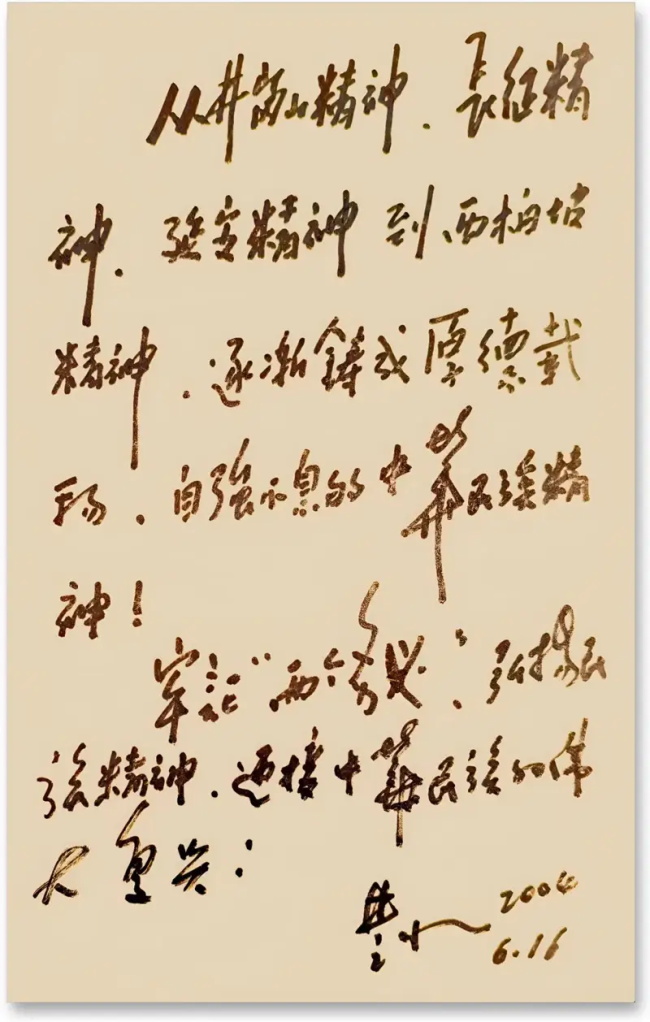 从井冈山精神、长征精
神、延安精神到西柏坡
精神,逐渐铸成厚德载
物、自强不息的中华民族精
神!
牢记“两个务必”,弘扬民
族精神,迎接中华民族的伟
大复兴!
2004
6.16